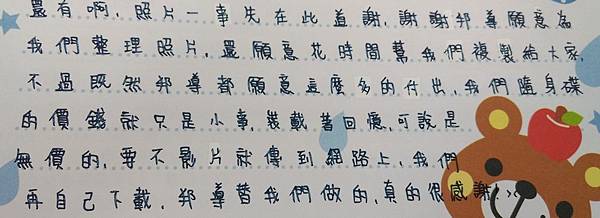 還有啊,照片一事先在此並謝,謝謝邦導願意為
我們整理照片,還願意花時間幫我們複製給大家,
不過既然邦導都願意這麼多的付出,我們隨身碟
的價錢就只是小事,裝載著回憶,可說是
無價的,要不影片就傳到網路上,我們
再自己下載,邦導替我們做的,真的很感謝!><